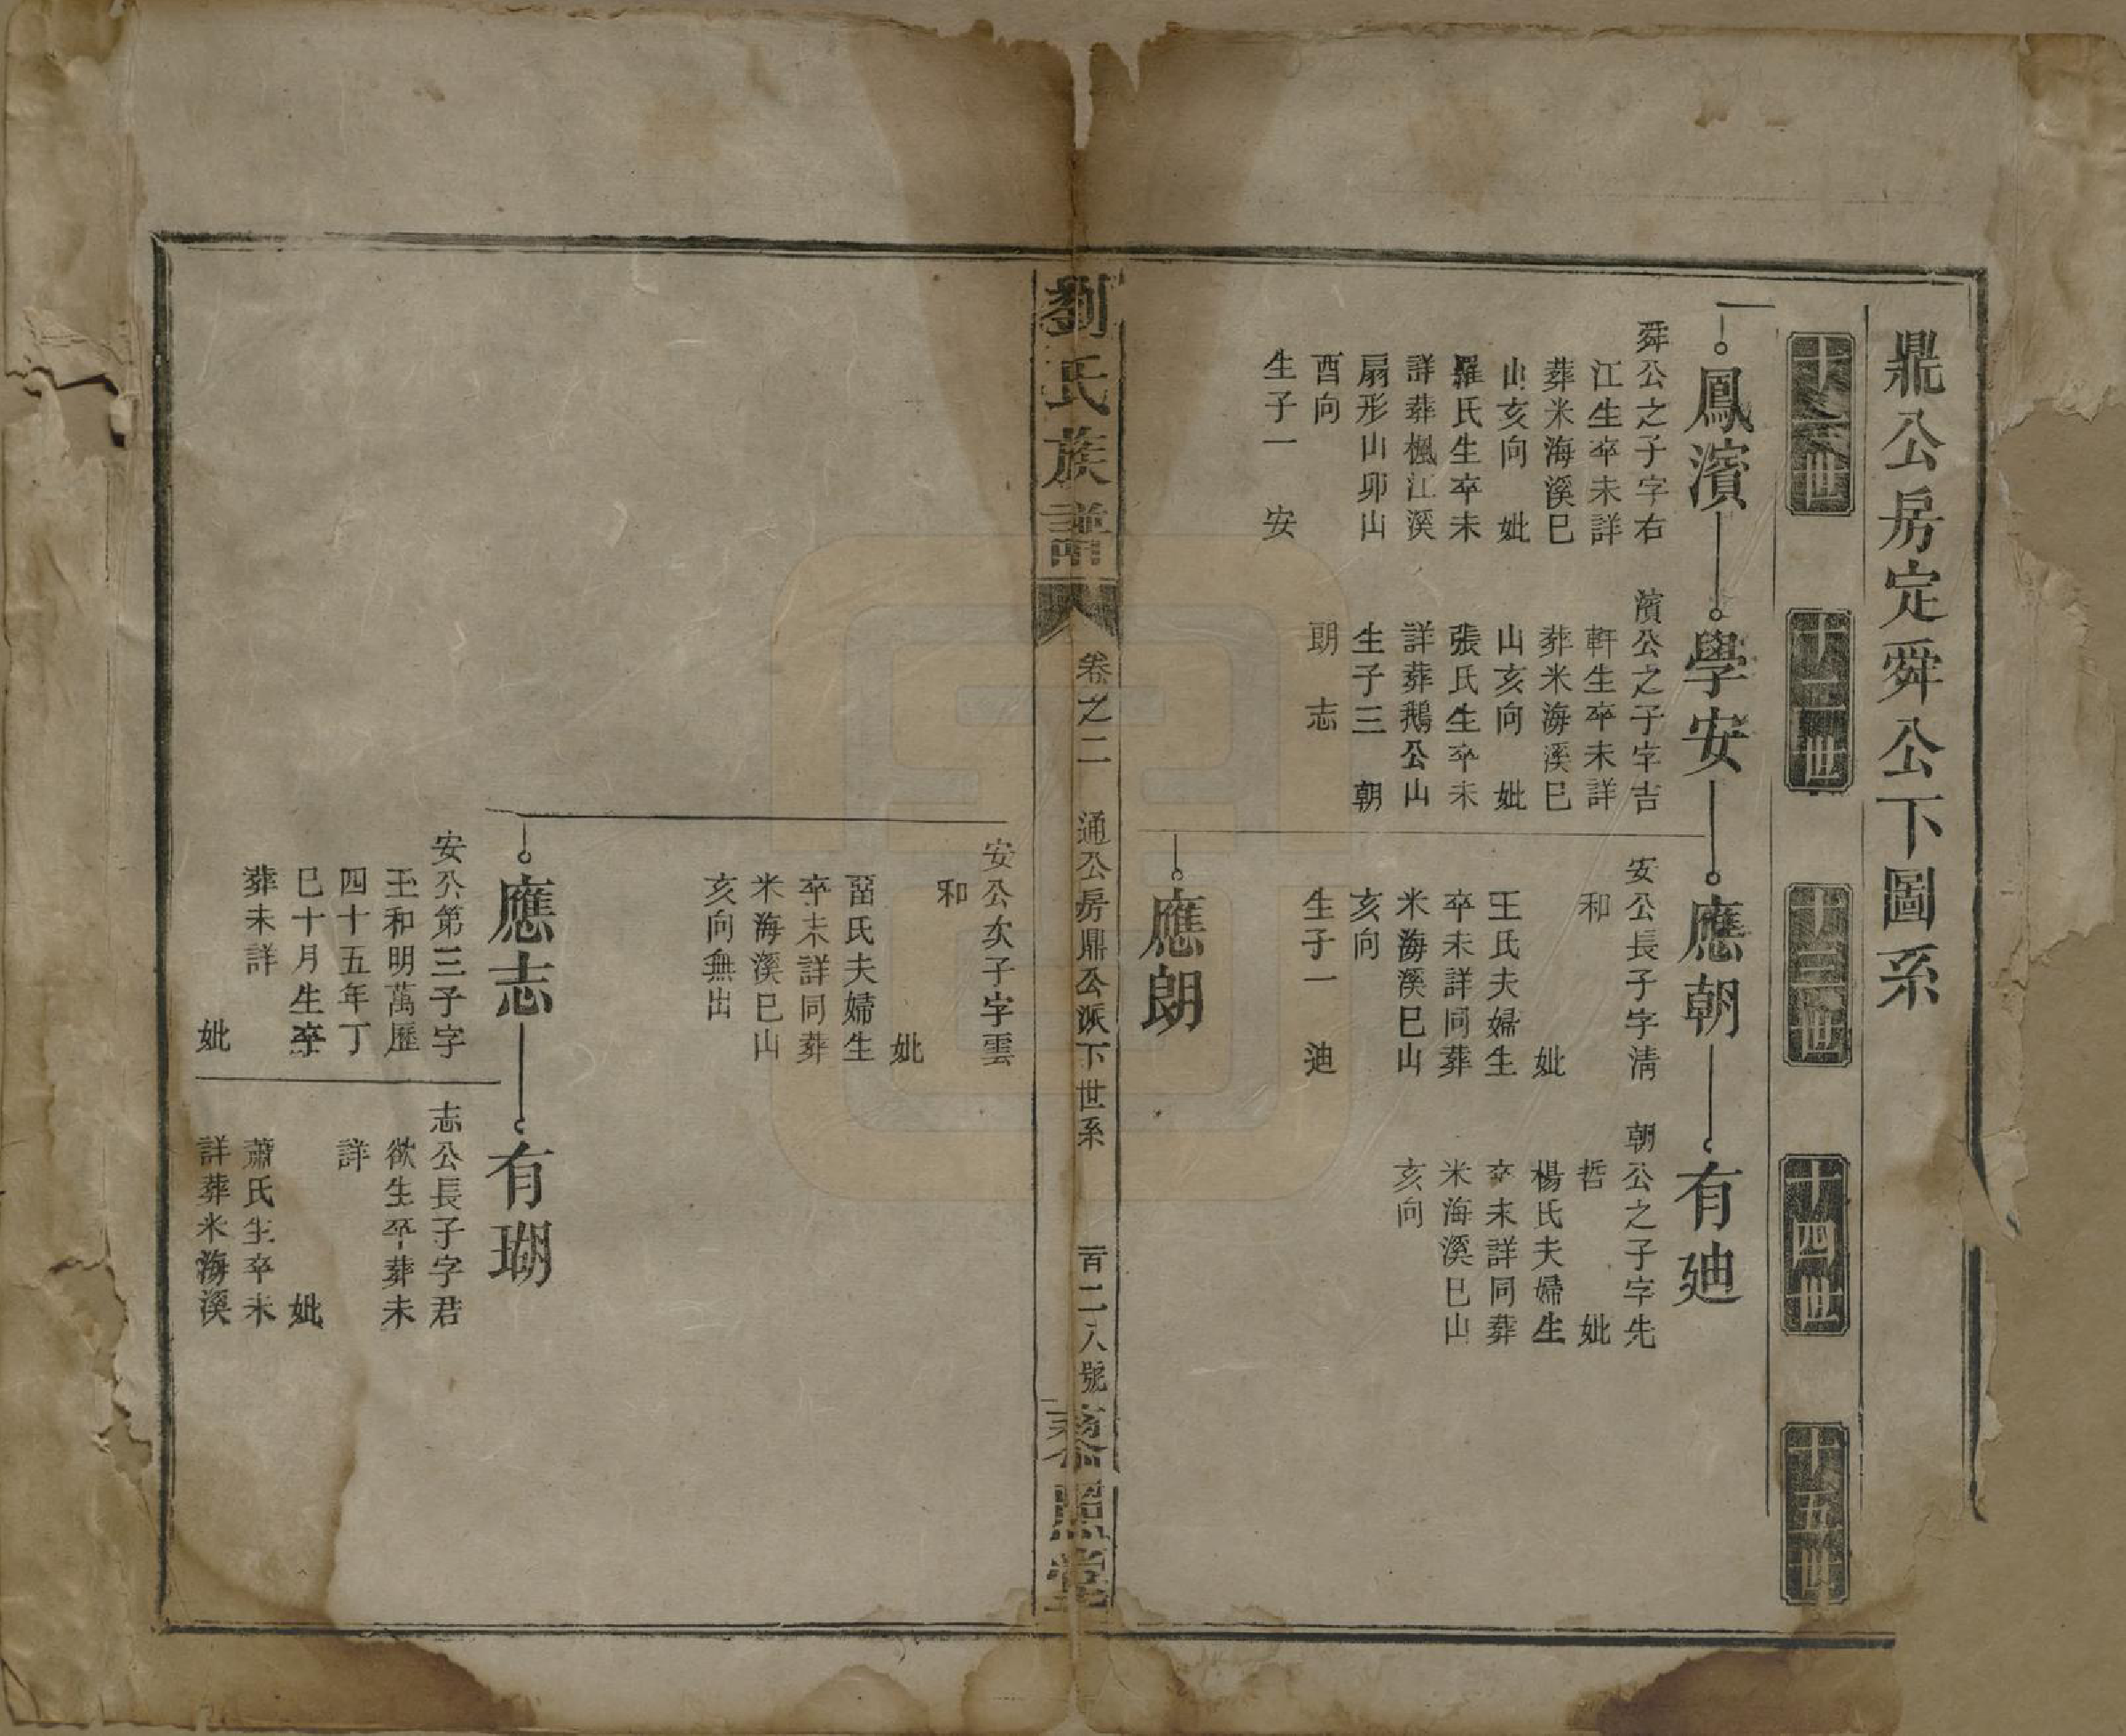 鼎公房定舜公下圖系
十一世
十二世
十三世
十四世
十五世
鳳濱
舜公之子字右
江生卒未詳
葬米海溪巳
山亥向　妣
羅氏生卒未
詳葬楓江溪
扇形山卯山
酉向
生子一　安
學安
濱公之子字吉
軒生卒未詳
葬米海溪巳
山亥向　妣
張氏生卒未
詳葬鵝公山
生子三　朝
朗　志
應朝
安公長子字清
和
妣
王氏夫婦生
卒未詳同葬
米海溪巳山
亥向
生子一　迪
有廸
朝公之子字先
哲　妣
楊氏夫婦生
卒未詳同葬
米海溪巳山
亥向
應朗
劉氏族譜
卷之二　通公房鼎公派下世系　一百二八號
黎照堂
安公次子字雲
和
妣
畱氏夫婦生
卒未詳同葬
米海溪巳山
亥向無出
應志
安公第三子字
玉和明萬歷
四十五年丁
巳十月生卒
葬未詳
妣
有瑚
志公長子字君
欲生卒葬未
詳
妣
蕭氏生卒未
詳葬米海溪